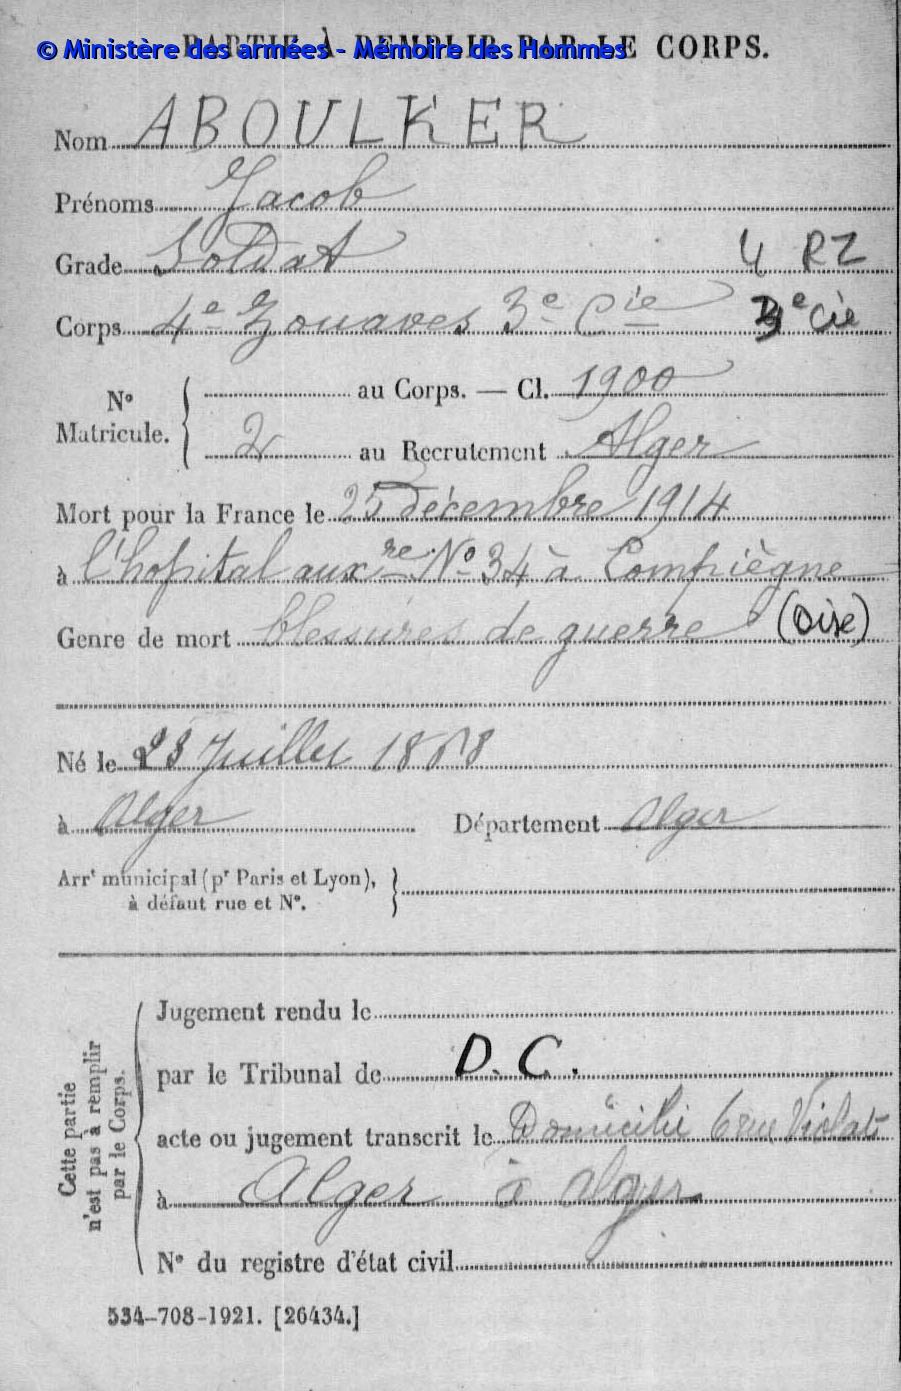 PARTIE À REMPLIR PAR LE CORPS.
© Ministère des armées - Mémoire des Hommes
Nom ABOULKER
Prénoms Jacob
Grade Soldat 4 RZ
Corps 4e Zouaves 3e Cie 3e Cie
N° Matricule. { au Corps. — Cl. 1900
2 au Recrutement Alger
Mort pour la France le 25 décembre 1914
à l'hopital auxre No 34 à Compiègne
Genre de mort blessures de guerre (Oise)
Né le 23 Juillet 18 8
à Alger Département Alger
Arrt municipal (pr Paris et Lyon),
à défaut rue et N°.
Cette partie
n'est pas à remplir
par le Corps.
Jugement rendu le
par le Tribunal de D. C.
acte ou jugement transcrit le Domicilié 6 rue Violat
à Alger à Alger
N° du registre d'état civil
534-708-1921. [26434.]